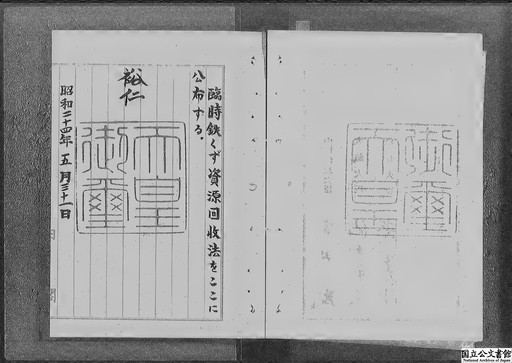 臨時鉄くず資源回収法をここに
公布する。
裕仁
天皇
御璽
昭和二十四年五月三十一日
内
閣
国立公文書館
National Archives of Japan